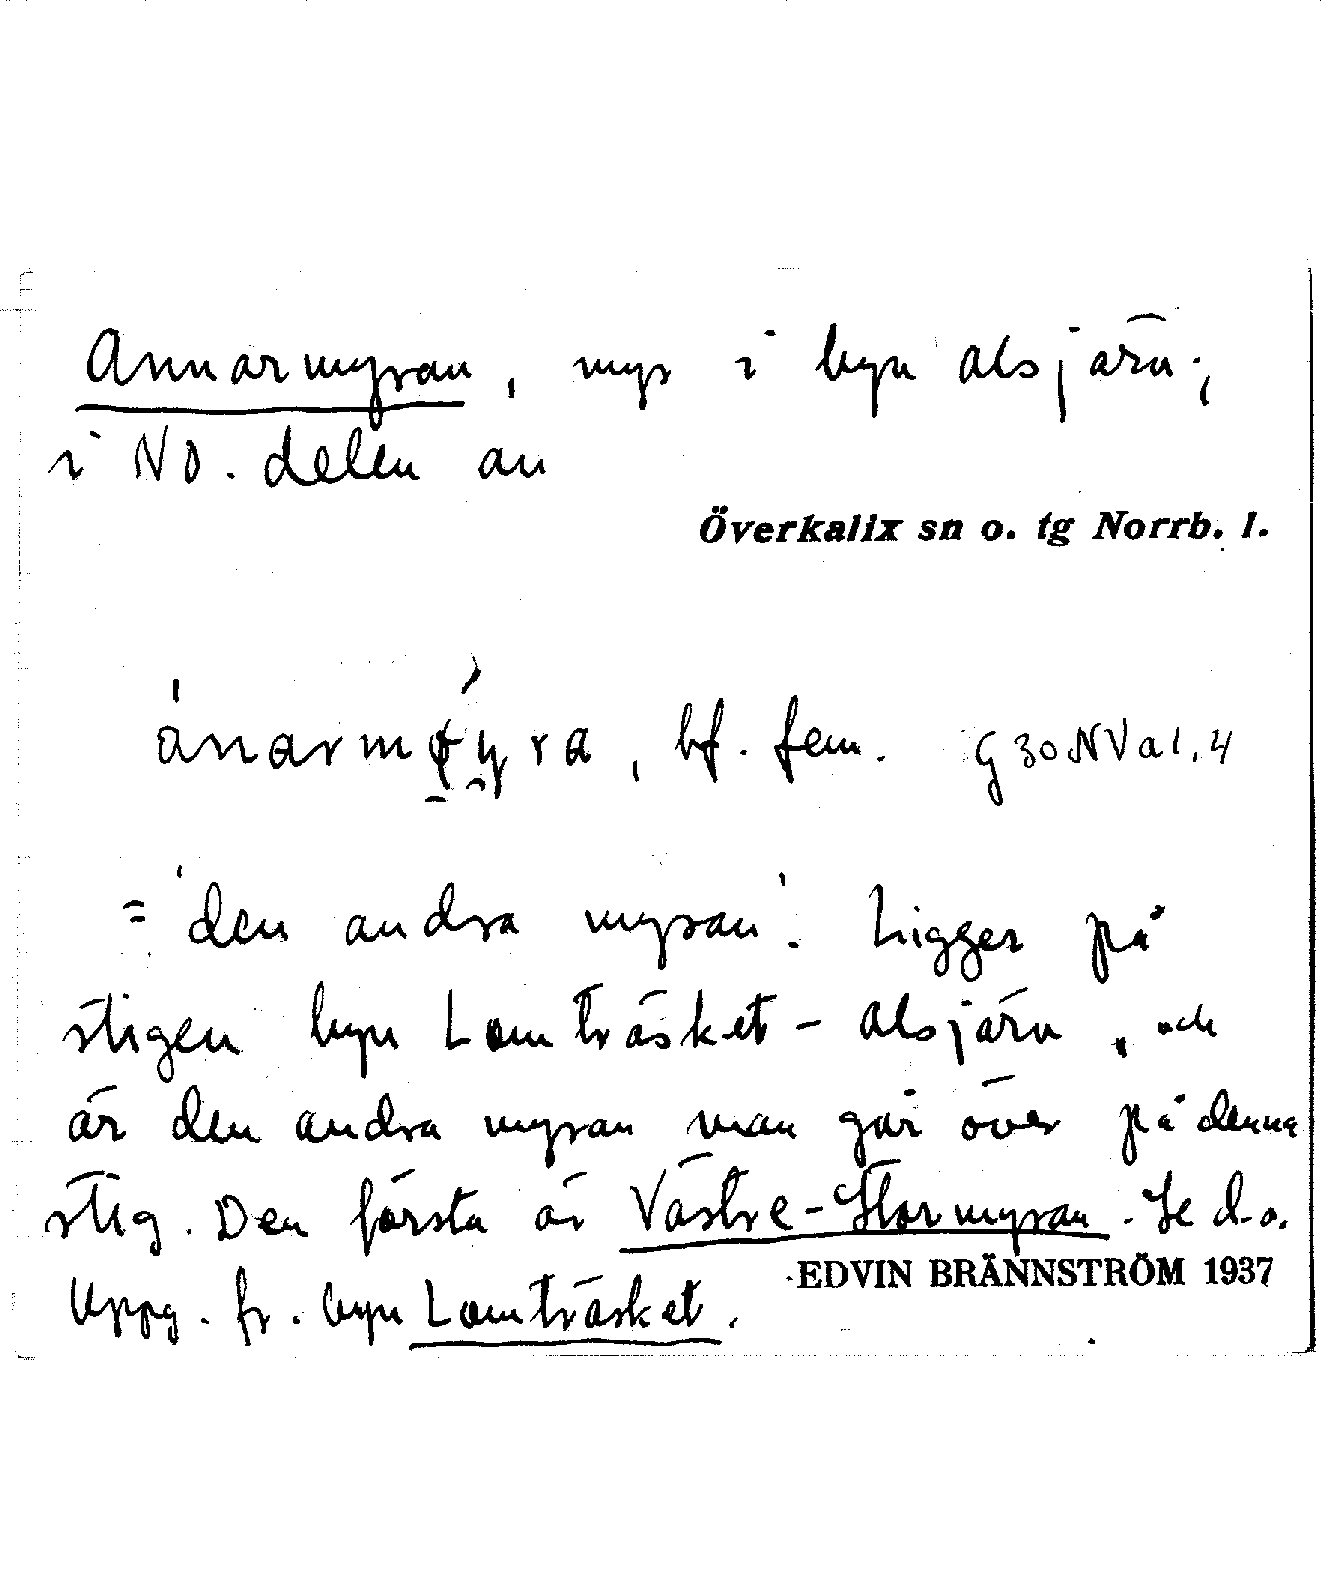 Annarmyran, myr i byn Alsjärv;
i NO. delen av
Överkalix sn o. tg Norrb. l.
bf. fem. G 30 NV a 1, 4
= 'den andra myran'. Ligger på
stigen byn Lomträsket - Alsjärv, och
är den andra myran man går över på denna
stig. Den första är Västre-Stormyran. Se d.o.
EDVIN BRÄNNSTRÖM 1937
Uppg. fr. byn Lomträsket.